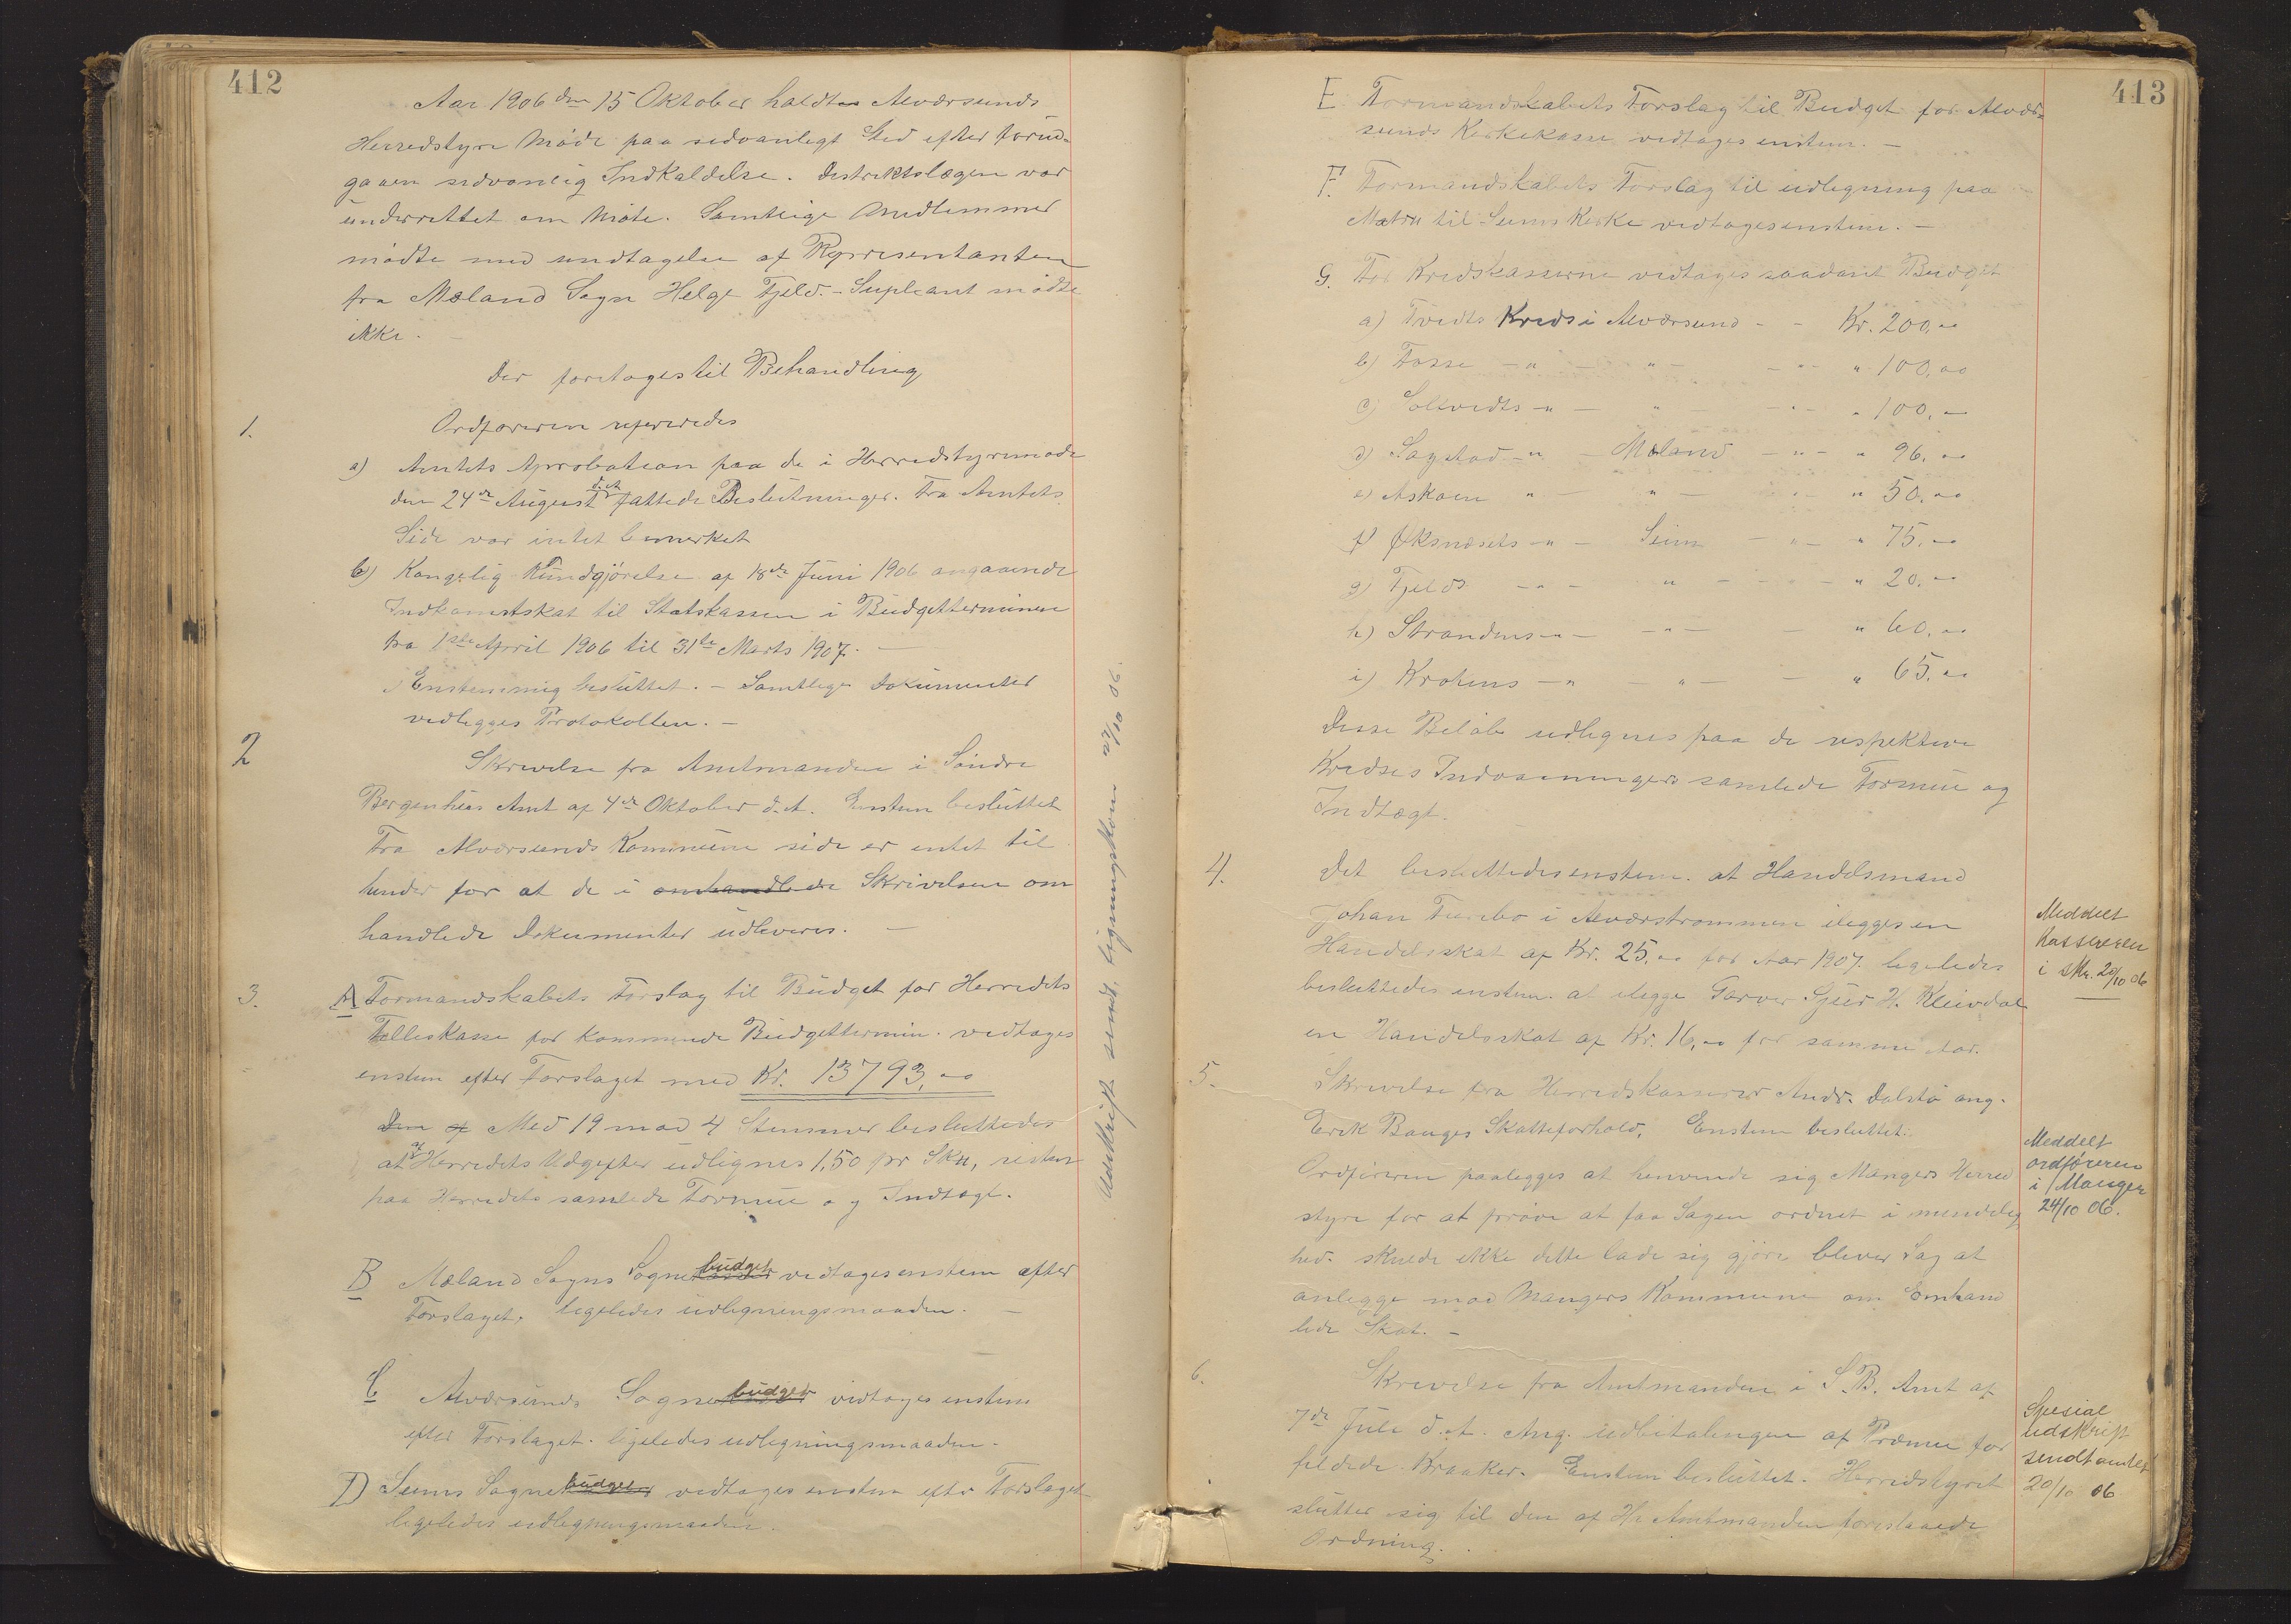 412
Aar 1906 den 15 Oktober holdtes Alværsunds
Herredstyre Møde paa sedvanlegt Sted efter forud-
gaaen sedvanlig Indkaldelse. Distriktslægen var
underrettet om Møte. Samtlige Medlemmer
mødte med undtagelse af Representanten
fra Mæland Sogn Helge Fjeld. - Supleant mødte
ikke. -
Der foretoges til Behandling
1. Ordføreren refereredes
a) Amtets Aprobation paa de i Herredstyremøde
den 24de August d.A. fattede Beslutninger. Fra Amtets
Side var intet bemerket
b) Kongelig Kundgjørelse af 18de Juni 1906 angaaende
Indkomstskat til Statskassen i Budgetterminen
fra 1ste April 1906 til 31te Marts 1907. -
Enstemmig besluttet. - Samtlige Dokumenter
vedlegges Protokollen. -
2 Skrivelse fra Amtmanden i Søndre
Bergenhus Amt af 4de Oktober d.A. Enstem besluttet
Fra Alværsunds Kommune side er intet til
hinder for at de i omhandlede Skrivelsen om
handlede Dokumenter udleveres. -
3. A Formandskabets Forslag til Budget for Herredets
Felleskasse for kommende Budgettermin. vedtages
enstem efter Forslaget med Kr. 13793,00
Den af Med 19 mod 4 Stemmer besluttedes
at af Herredets Udgefter udlignes 1,50 pr Sku, resten
paa Herredets samlede Formue og Indtægt.
B Mæland Sogns Sognebudget vedtages enstem efter
Forslaget. ligeledes udlegningsmaaden. -
C Alværsunds Sognebudget vedtages enstem
efter Forslaget. ligeledes udlegningsmaaden.
D Seims Sognebudget vedtages enstem efter Forslaget
legeledes udlegningsmaaden.
Udskrift sendt. ligningskom 27/10 06.
413
E Formandskabets Forslag til Budget for Alvær-
sunds Kerkekasse vedtages enstem. -
F. Formandskabets Forslag til udlegning paa
Matru til Seims Kerke vedtages enstem. -
G. For Kredskasserne vedtages saadant Budget
a) Tvedts Kreds i Alværsund - - Kr. 200,00
b) Fosse - " - " - - " - " 100,00
c) Soltvedts - " - " - - " - " 100,00
d) Sagstad - " - Mæland - " - " 96,00
e) Askoen " - " - - " - " 50,00
f) Øksnesets - " - Seim - " - " 75,00
g) Fjelds - " - " - - - " 20,00
h) Strandens - " - - " - - " 60,00
i) Krohens - " - " - - " 65,00
Disse Beløb udlignes paa de respektive
Kredses Indvaaningers samlede Formue og
Indtægt.
4. Det besluttedes enstem. at Handelsmand
Johan Furebo i Alværstrømmen ilegges en
Handelsskat af Kr. 25,00 for Aar 1907. legeledes
besluttedes enstem. at elegge Garver Sjur H. Kleivdal
en Handelsskat af Kr. 16,00 for samme Aar.
Meddelt
Kassereren
i skr. 20/10 06
5. Skrivelse fra Herredskasserer Andr. Dalstø ang.
Erik Bauges Skatteforhold. Enstem besluttet:
Ordføreren paalegges at henvende sig Mangers Herred
styre for at prøve at faa Sagen ordnet i mindelig
hed. skulde ikke dette lade sig gjøre blever Sag at
anlegge mod Mangers Kommune om Omhand
lede Skat. -
Meddelt
ordføreren
i Manger
24/10 06.
6. Skrivelse fra Amtmanden i S.B. Amt af
7de Juli d.A. Ang. udbetalingen af Præmie for
feldede Kraaker. Enstem besluttet. Herredstyret
slutter sig til den af Hr Amtmanden foreslaaede
Ordning.
Spesial
udskrift
sendt amtet
20/10 06